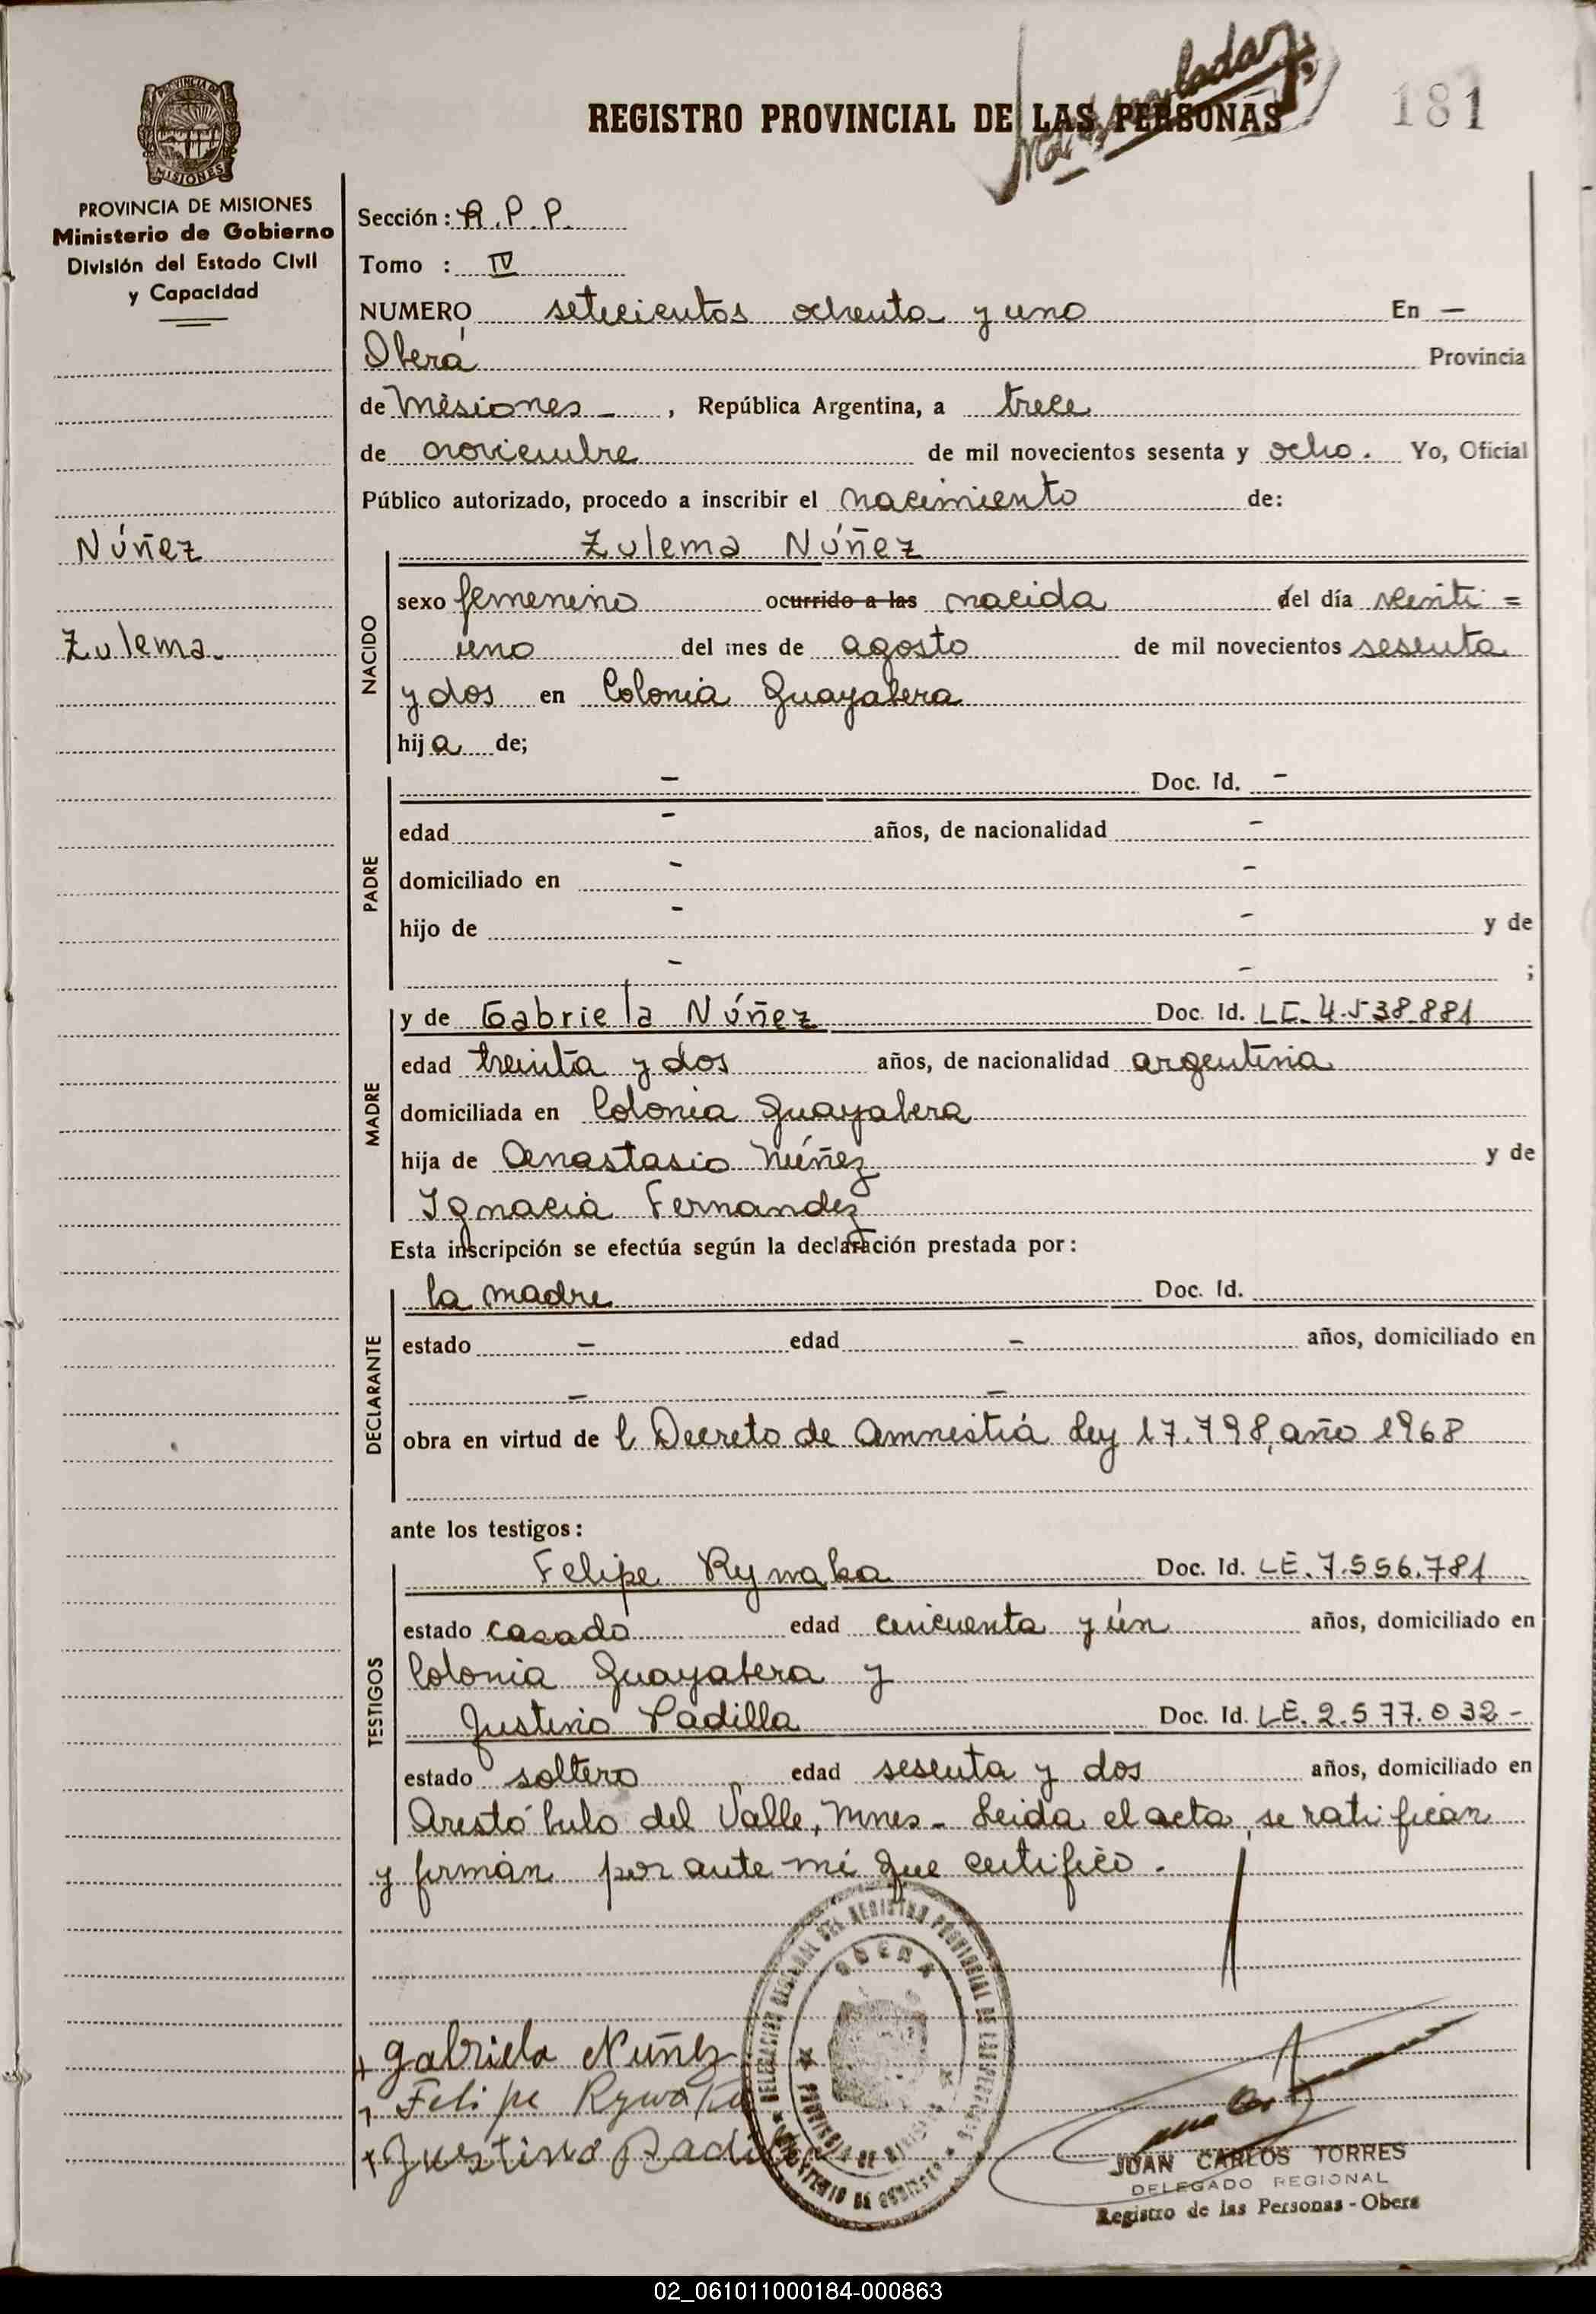 REGISTRO PROVINCIAL DE LAS PERSONAS
181
PROVINCIA DE MISIONES
Ministerio de Gobierno
División del Estado Civil
y Capacidad
Sección: R.P.P.
Tomo : IV
NUMERO setecientos ochenta y uno En —
Oberá Provincia
de Misiones - , República Argentina, a trece
de noviembre de mil novecientos sesenta y ocho. Yo, Oficial
Público autorizado, procedo a inscribir el nacimiento de:
Núñez
Zulema
NACIDO
Zulema Núñez
sexo femenino ocurrido a las nacida del día veinti =
uno del mes de agosto de mil novecientos sesenta
y dos en Colonia Guayabera
hija de;
PADRE
- Doc. Id. -
edad - años, de nacionalidad -
domiciliado en - -
hijo de - - y de
- - ;
MADRE
y de Gabriela Núñez Doc. Id. LC. 4.538.881
edad treinta y dos años, de nacionalidad argentina
domiciliada en Colonia Guayabera
hija de Anastasio Núñez y de
Ignacia Fernandez
Esta inscripción se efectúa según la declaración prestada por:
DECLARANTE
la madre Doc. Id.
estado - edad - años, domiciliado en
- -
obra en virtud de l Decreto de Amnestia Ley 17.798, año 1968
ante los testigos:
TESTIGOS
Felipe Doc. Id. LE. 7.556.781
estado casado edad cincuenta y ún años, domiciliado en
Colonia Guayabera y
Justino Padilla Doc. Id. LE. 2.577.032-
estado soltero edad sesenta y dos años, domiciliado en
Aristóbulo del Valle, Mnes- Leida el acta, se ratifican
y firman por ante mí que certifico.
Gabriela Nuñez
Felipe
Justino
DELEGACION REGIONAL DEL REGISTRO PROVINCIAL DE LAS PERSONAS
OBERA
PROVINCIA DE MISIONES
MINISTERIO DE GOBIERNO
JUAN CARLOS TORRES
DELEGADO REGIONAL
Registro de las Personas - Obera
02_061011000184-000863